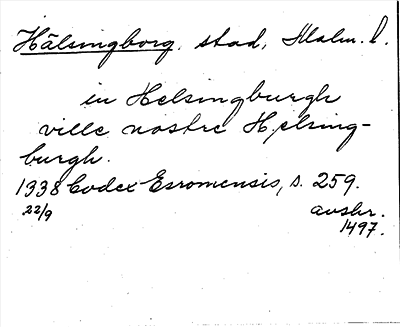 Hälsingborg, stad, Malm. l.
in Helsingburgh
ville nostre Helsing-
burgh.
1338 Codex Esromensis, s. 259.
22/9 avskr.
1497.